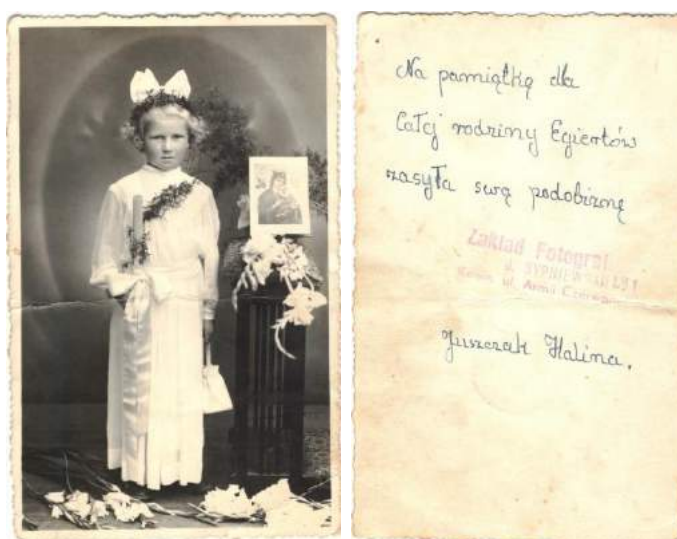 Na pamiątkę dla
Całej rodziny Egiertów
zasyła swą podobiznę
Zakład Fotograf.
ul. Armii Czerw
Juszczak Halina.